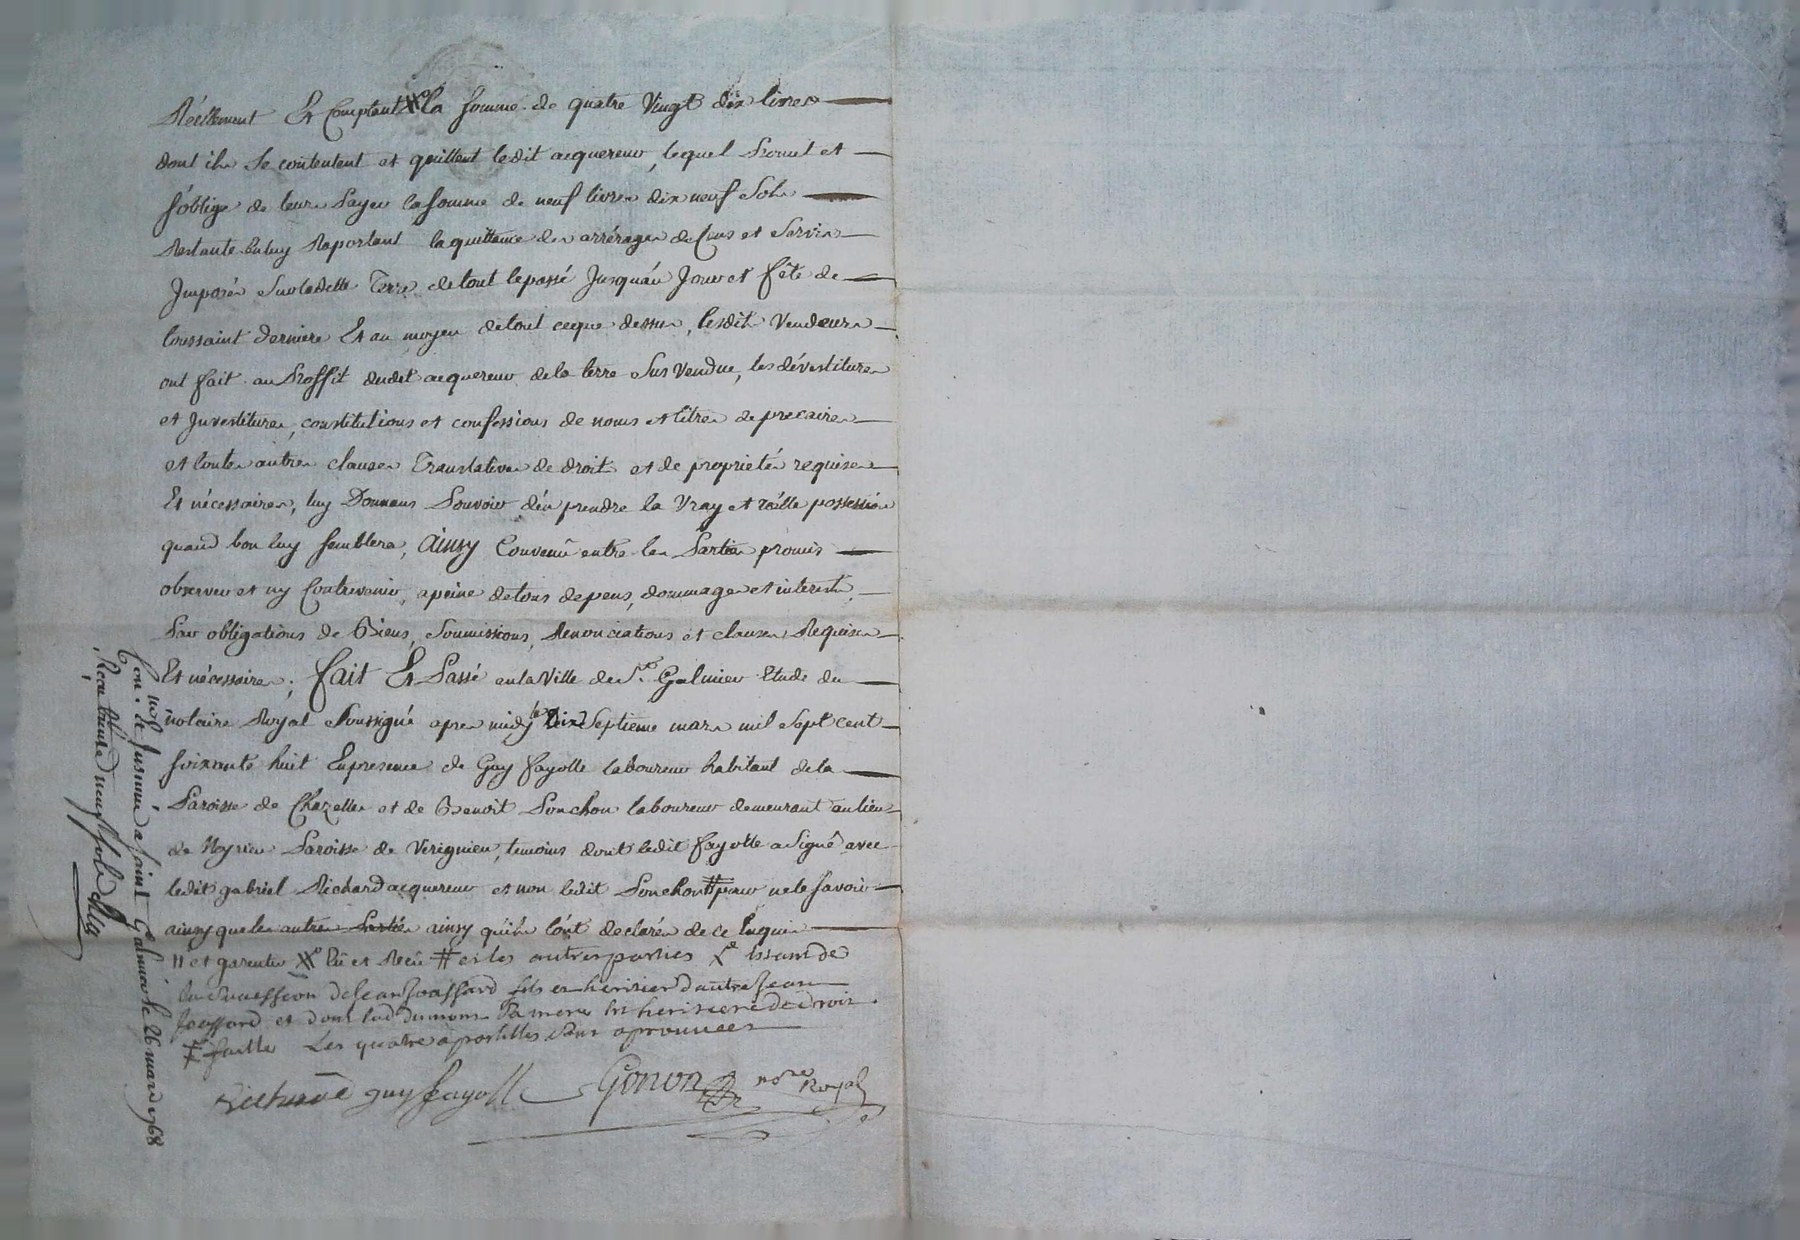 Réellement Et Comptant X la somme de quatre Vingt dix livres
dont ils se contentent et quittent ledit acquereur, lequel Promet et
s'oblige de leur Payer la somme de neuf livres dix neuf Sols
Restante En luy Raportant la quittance des arrérages de Cens et Servis
Imposés Sur ladette Terre de tout le passé Jusqu'au Jour et fête de
toussaint derniere Et au moyen de tout ceque dessus, lesdits Vendeurs
ont fait au Proffit dudit acquereur de la terre Sus Vendue, les dévestitures
et Investitures, constitutions et confessions de noms et titres de precaires
et toutes autres clauses Translatives de droits et de proprietés requises
Et nécessaires, luy Donnans Pouvoir d'én prendre la Vray et réélle possession
quand bon luy semblera, Ainsy Convenû entre les Parties promis
observer et ny Contrevenir, a peine de tous depens, dommages et interests,
Par obligations de Biens, Soumissions, Renonciations et clauses Requises
Et nécessaires; fait Et Passé en la Ville de St. Galmier Etude du
notaire Royal Soussigné apres midy le dix Septieme mars mil Sept cent
soixante huit En presence de Guy fayolle laboureur habitant de la
Paroisse de Chazelles et de Benoit Ponchon laboureur demeurant au lieu
de Meyrieu Paroisse de Verignieu, temoins dont ledit fayolle a Signé avec
ledit gabriel Richard acquereur et non ledit Ponchon # pour ne le savoir
ainsy que les autres Parties ainsy qu'ils l'ónt declarés de ce Enquis
11 et garentir X lû et Reçu # et les autres parties
la Succession de Jean Joassard fils et héritier d'autre Jean
Joassard et dont lad. Dumont Sa mere est heritiere de droit
faille Les quatre apostilles Sont aprouvées
Richard guy fayolle Gonon nore Royal
Con. et Insinué a saint Galmier le 26 mars 1768
Reçu trente neuf sols